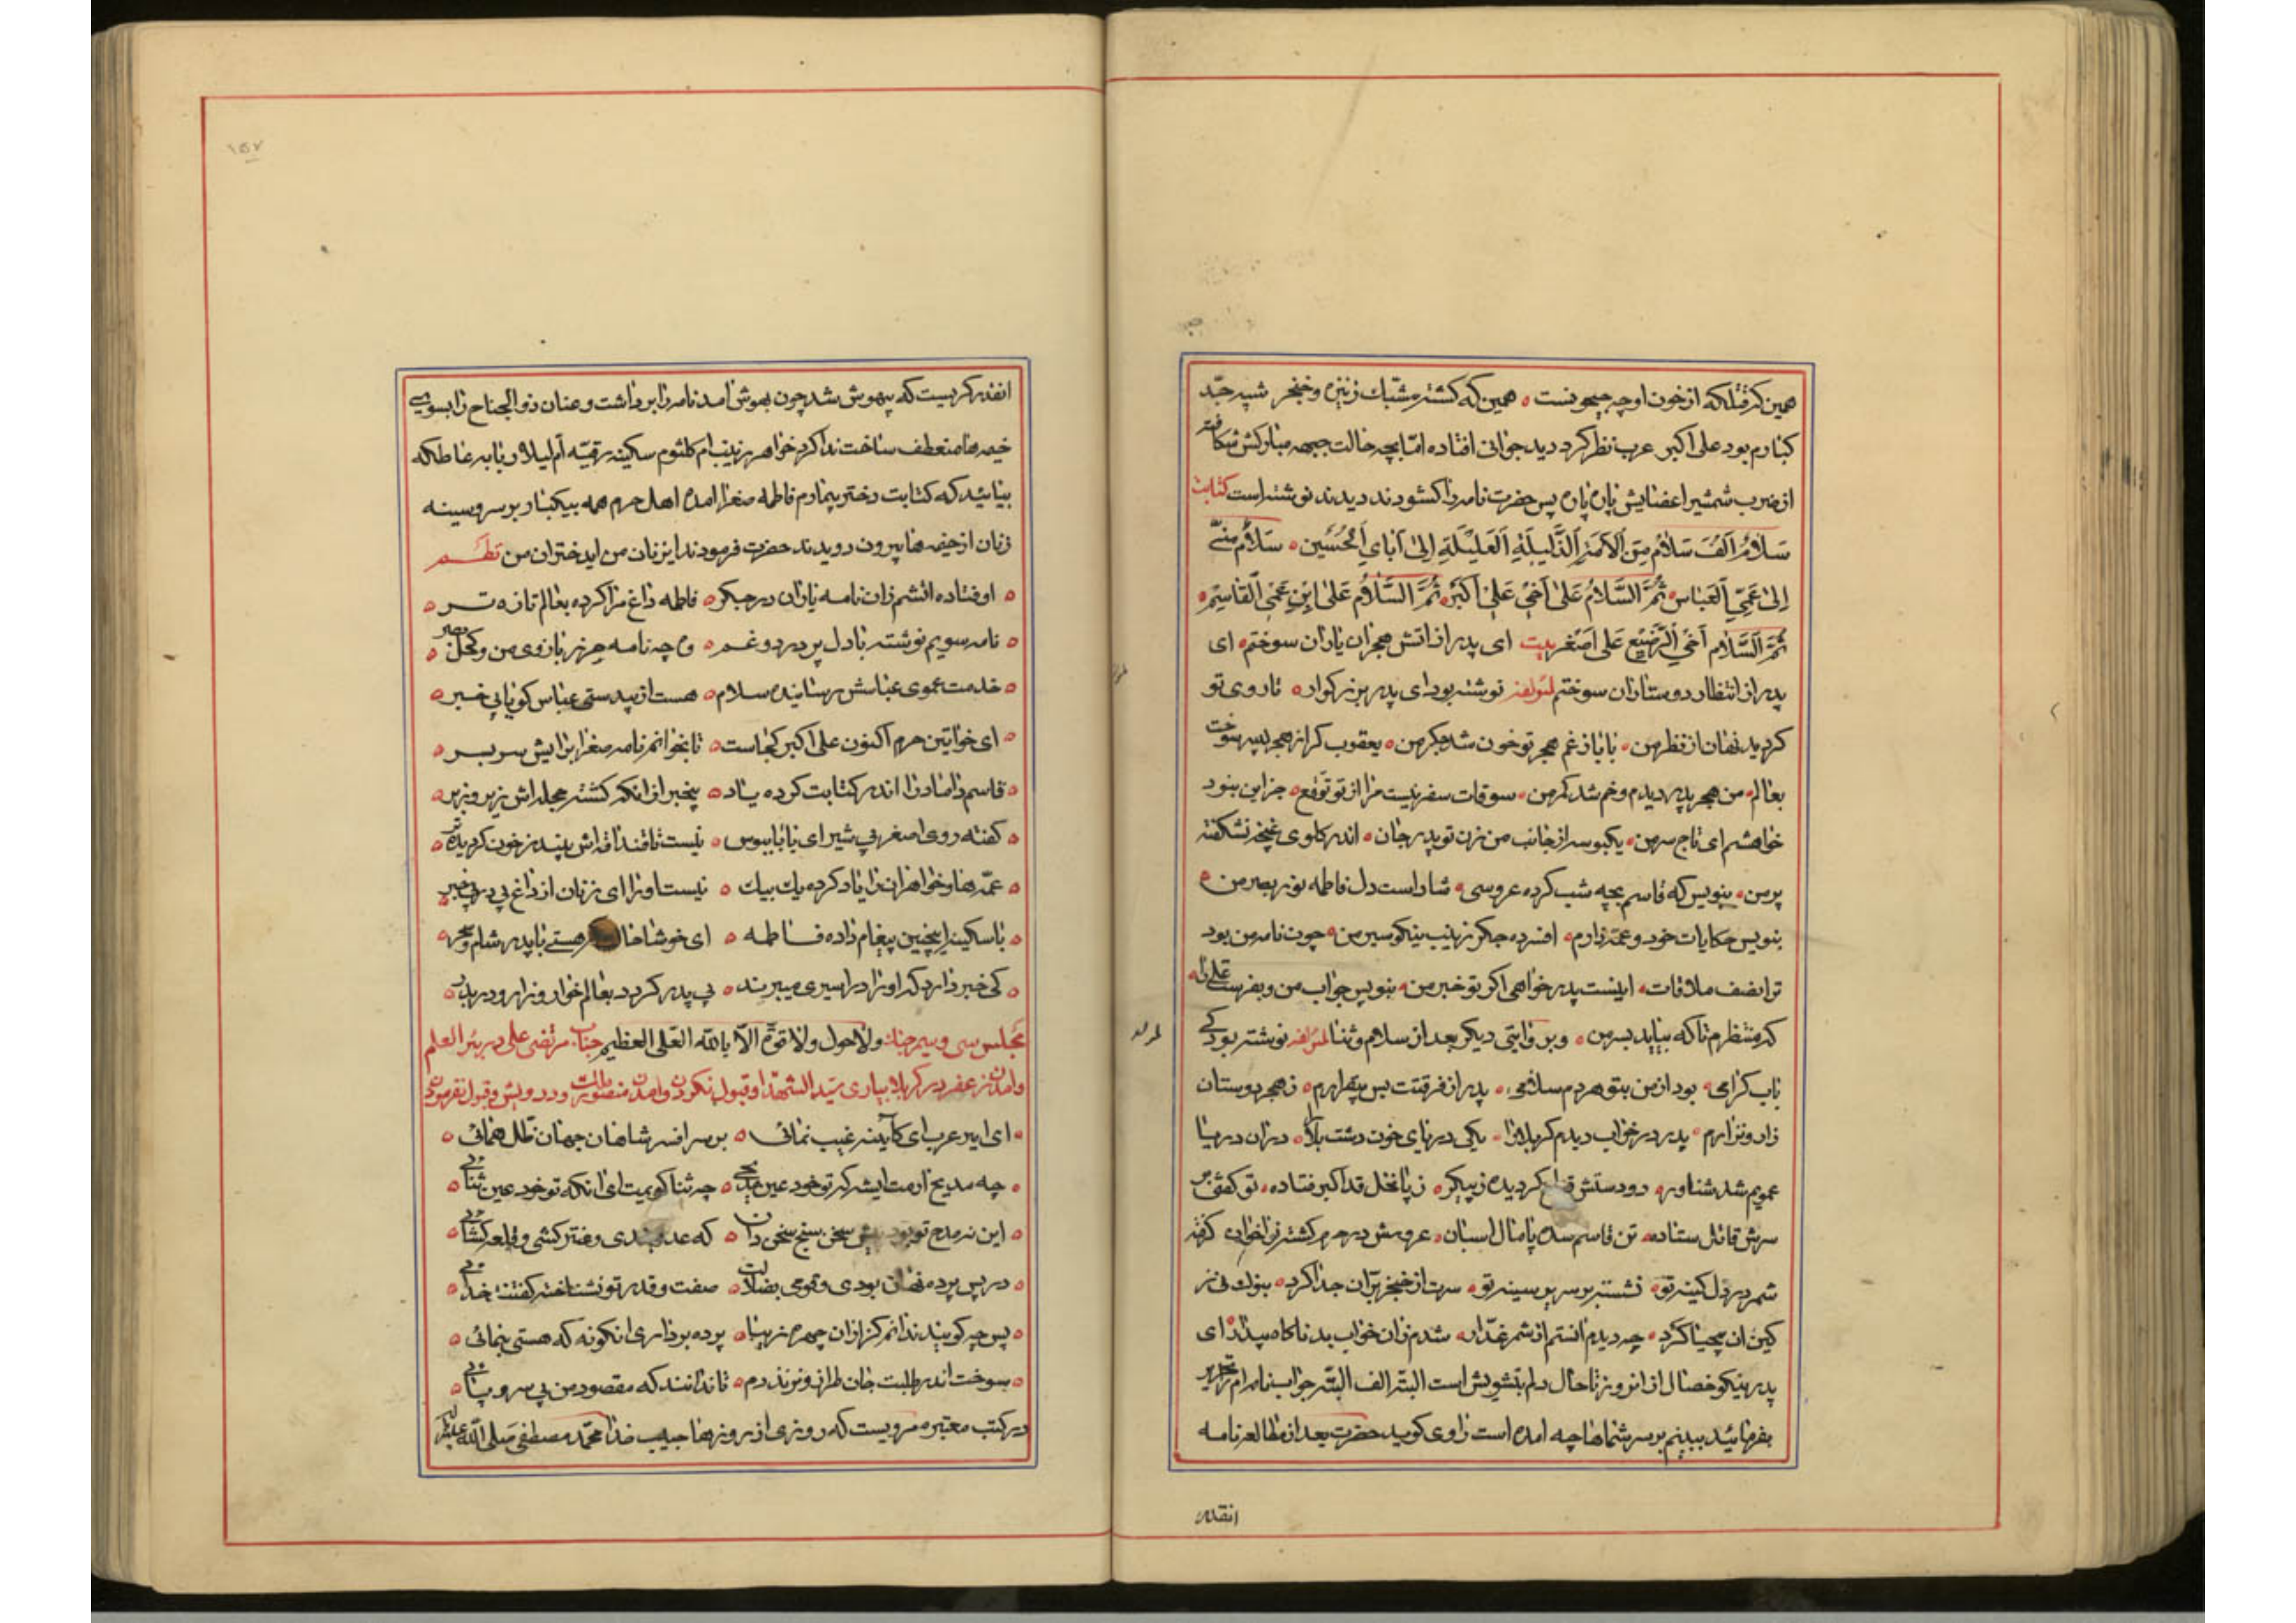 همین کرفتلکه از خون او چه جیحونست ه همین که کشته مشبك زنیزه و خنجر شبیه جد
کبارم بود علی اکبر عرب نظر کرد دید جوانی افتاده امّا بچه حالت جبهه مبارکش شکافته
از ضرب شمشیر اعضایش پاره پاره پس حضرت نامه را کشودند دیدند نوشته است کتابت
سَلامٌ اَلفَ سَلامٌ مِنَ الاَمَةِ الذَّلیلَةِ العَلیلَةِ اِلیٰ اَبایَ اَلحُسَین ه سَلامٌ مِنّی
اِلیٰ عَمِّیَ العَبّاس ثُمَّ السَّلامُ عَلیٰ اَخی عَلیّ اَکبَر ه ثُمَّ السَّلامُ عَلیٰ ابنِ عَمّی القاسِم ه
ثُمَّ السَّلام اَخی الرَّضیع عَلی اَصغَر بیت ای پدر از اتش هجران یاران سوختم ه ای
پدر از انتظار دوستاران سوختم لمؤلفه نوشته بود ای پدر بزرکوار ه تا روی تو
کردید نهان از نظر من ه بابا ز غم هجر تو خون شد جکر من ه یعقوب کر از هجر پسر سوخت
بعالم ه من هجر پدر دیدم و خم شد کمر من ه سوقات سفر نیست مرا از تو توقع ه جز این نبود
خواهشم ای تاج سر من ه یکبوسه از جانب من زن تو پدر جان ه اندر کلوی غنچه نشکفته
پر من ه بنویس که قاسم بچه شب کرده عروسی ه شاد است دل فاطمه نور بصر من ه
بنویس حکایات خود و عمه زارم ه افسرده جکر زینب نیکو سیر من ه چون نامه من بود
ترا نصف ملاقات ه اینست پدر خواهی اکر تو خبر من ه بنویس جواب من و بفرست علی را ه
که منتظرم تا که بیاید بسر من ه و بروایتی دیکر بعد از سلام و ثنا لمؤلفه نوشته بود کی
باب کرامی ه بود از من بتو هر دم سلامی ه پدر از فرقتت بس بیقرارم ه ز هجر دوستان
زار و نزارم ه پدر در خواب دیدم کربلا را ه یکی دریای خون دشت بلا را ه در ان دریا
عمویم شد شناور ه دو دستش قطع کردیده ز پیکر ه ز پا نخل قد اکبر فتاده ه تو کفتی بر
سرش قاتل ستاده ه تن قاسم شده پامال اسبان ه عروسش در حرم کشته
شمر در دل کینه تو ه نشسته بر سر سینه تو ه سرت از خنجر بران جدا کرد ه بنوك نی ز
کین ان بیحیا کرد ه چه دیدم انستم از شمر غدار ه شدم زان خواب بد ناکاه بیدار ای
پدر نیکو خصال از انروز تا حال دلم بتشویش است البته الف البته جواب نامه ام تحریر
بفرمائید ببینم بر سر شماها چه امده است راوی کوید حضرت بعد از مطالعه نامه
انقدر
۱۵۷
انقدر کریست که بیهوش شد چون بهوش امد نامه را برداشت و عنان ذوالجناح را بسوی
خیمه ها منعطف ساخت ندا کرد خواهر زینب ام کلثوم سکینه رقیّه اُم لیلا ربابه عاطکه
بیائید که کتابت دختر بیمارم فاطمه صغرا امده اهل حرم همه بیکبار بر سر و سینه
زنان از خیمه ها بیرون دویدند حضرت فرمودند ای زنان من ای دختران من نظم
ه اوفتاده اتشم زان نامه یاران در جکر ه فاطمه داغ مرا کرده بعالم تازه تر ه
ه نامه سویم نوشته با دل پر درد و غم ه وه چه نامه حرز بازوی من و کحل بصر ه
ه خدمت عموی عباسش رسانیده سلام ه هست از بیدستی عباس کویا بی خبر ه
ه ای خواتین حرم اکنون علی اکبر کجاست ه تا بخوانم نامه صغرا برایش سر بسر ه
ه قاسم داماد را اندر کتابت کرده یاد ه بیخبر از انکه کشته حجله اش زیر و زبر ه
ه کفته روی اصغر بی شیر ای بابا ببوس ه نیست تا قنداقه اش بیند ز خون کردیده تر ه
ه عمه ها و خواهران را یاد کرده یك بیك ه نیست او را ای زنان از داغ بی خبر ه
ه با سکینه اینچنین پیغام داده فاطمه ه ای خوشا حالت که هستی با پدر شام و سحر ه
ه کی خبر دارد که او را در اسیری میبرند ه بی پدر کردد بعالم خوار و زار و دربدر ه
مجلس سی و سیم جناب ولا حول ولا قوّة الّا بالله العلی العظیم جناب مرتضی علی در بئر العلم
وامدن زعفر در کربلا بیاری سید الشهدا و قبول نکردن وامدن منصور ملک و درویش و قبول نفرمودن
ه ای امیر عرب ای کآینه غیب نمائی ه بر سر افسر شاهان جهان ظل همائی ه
ه چه مدیح ارمت ایشه که تو خود عین مدیحی ه چه ثنا کویمت ای انکه تو خود عین ثنائی ه
ه این نه مدح تو بود پیش سخن سنج سخن دان ه که عدو بندی و عنتر کشی و قلعه کشائی ه
ه در پس پرده نهان بودی و قومی بضلالت ه صفت و قدر تو نشناخته کفتند خدائی ه
ه پس چه کویند ندانم کر از ان چهره زیبا ه پرده برداری انکونه که هستی بنمائی ه
ه سوخت اندر طلبت جان طراز و نزند دم ه تا ندانند که مقصود من بی سر و پائی ه
در کتب معتبره مرویست که روزی از روزها حبیب خدا محمّد مصطفی صلی الله علیه و آله